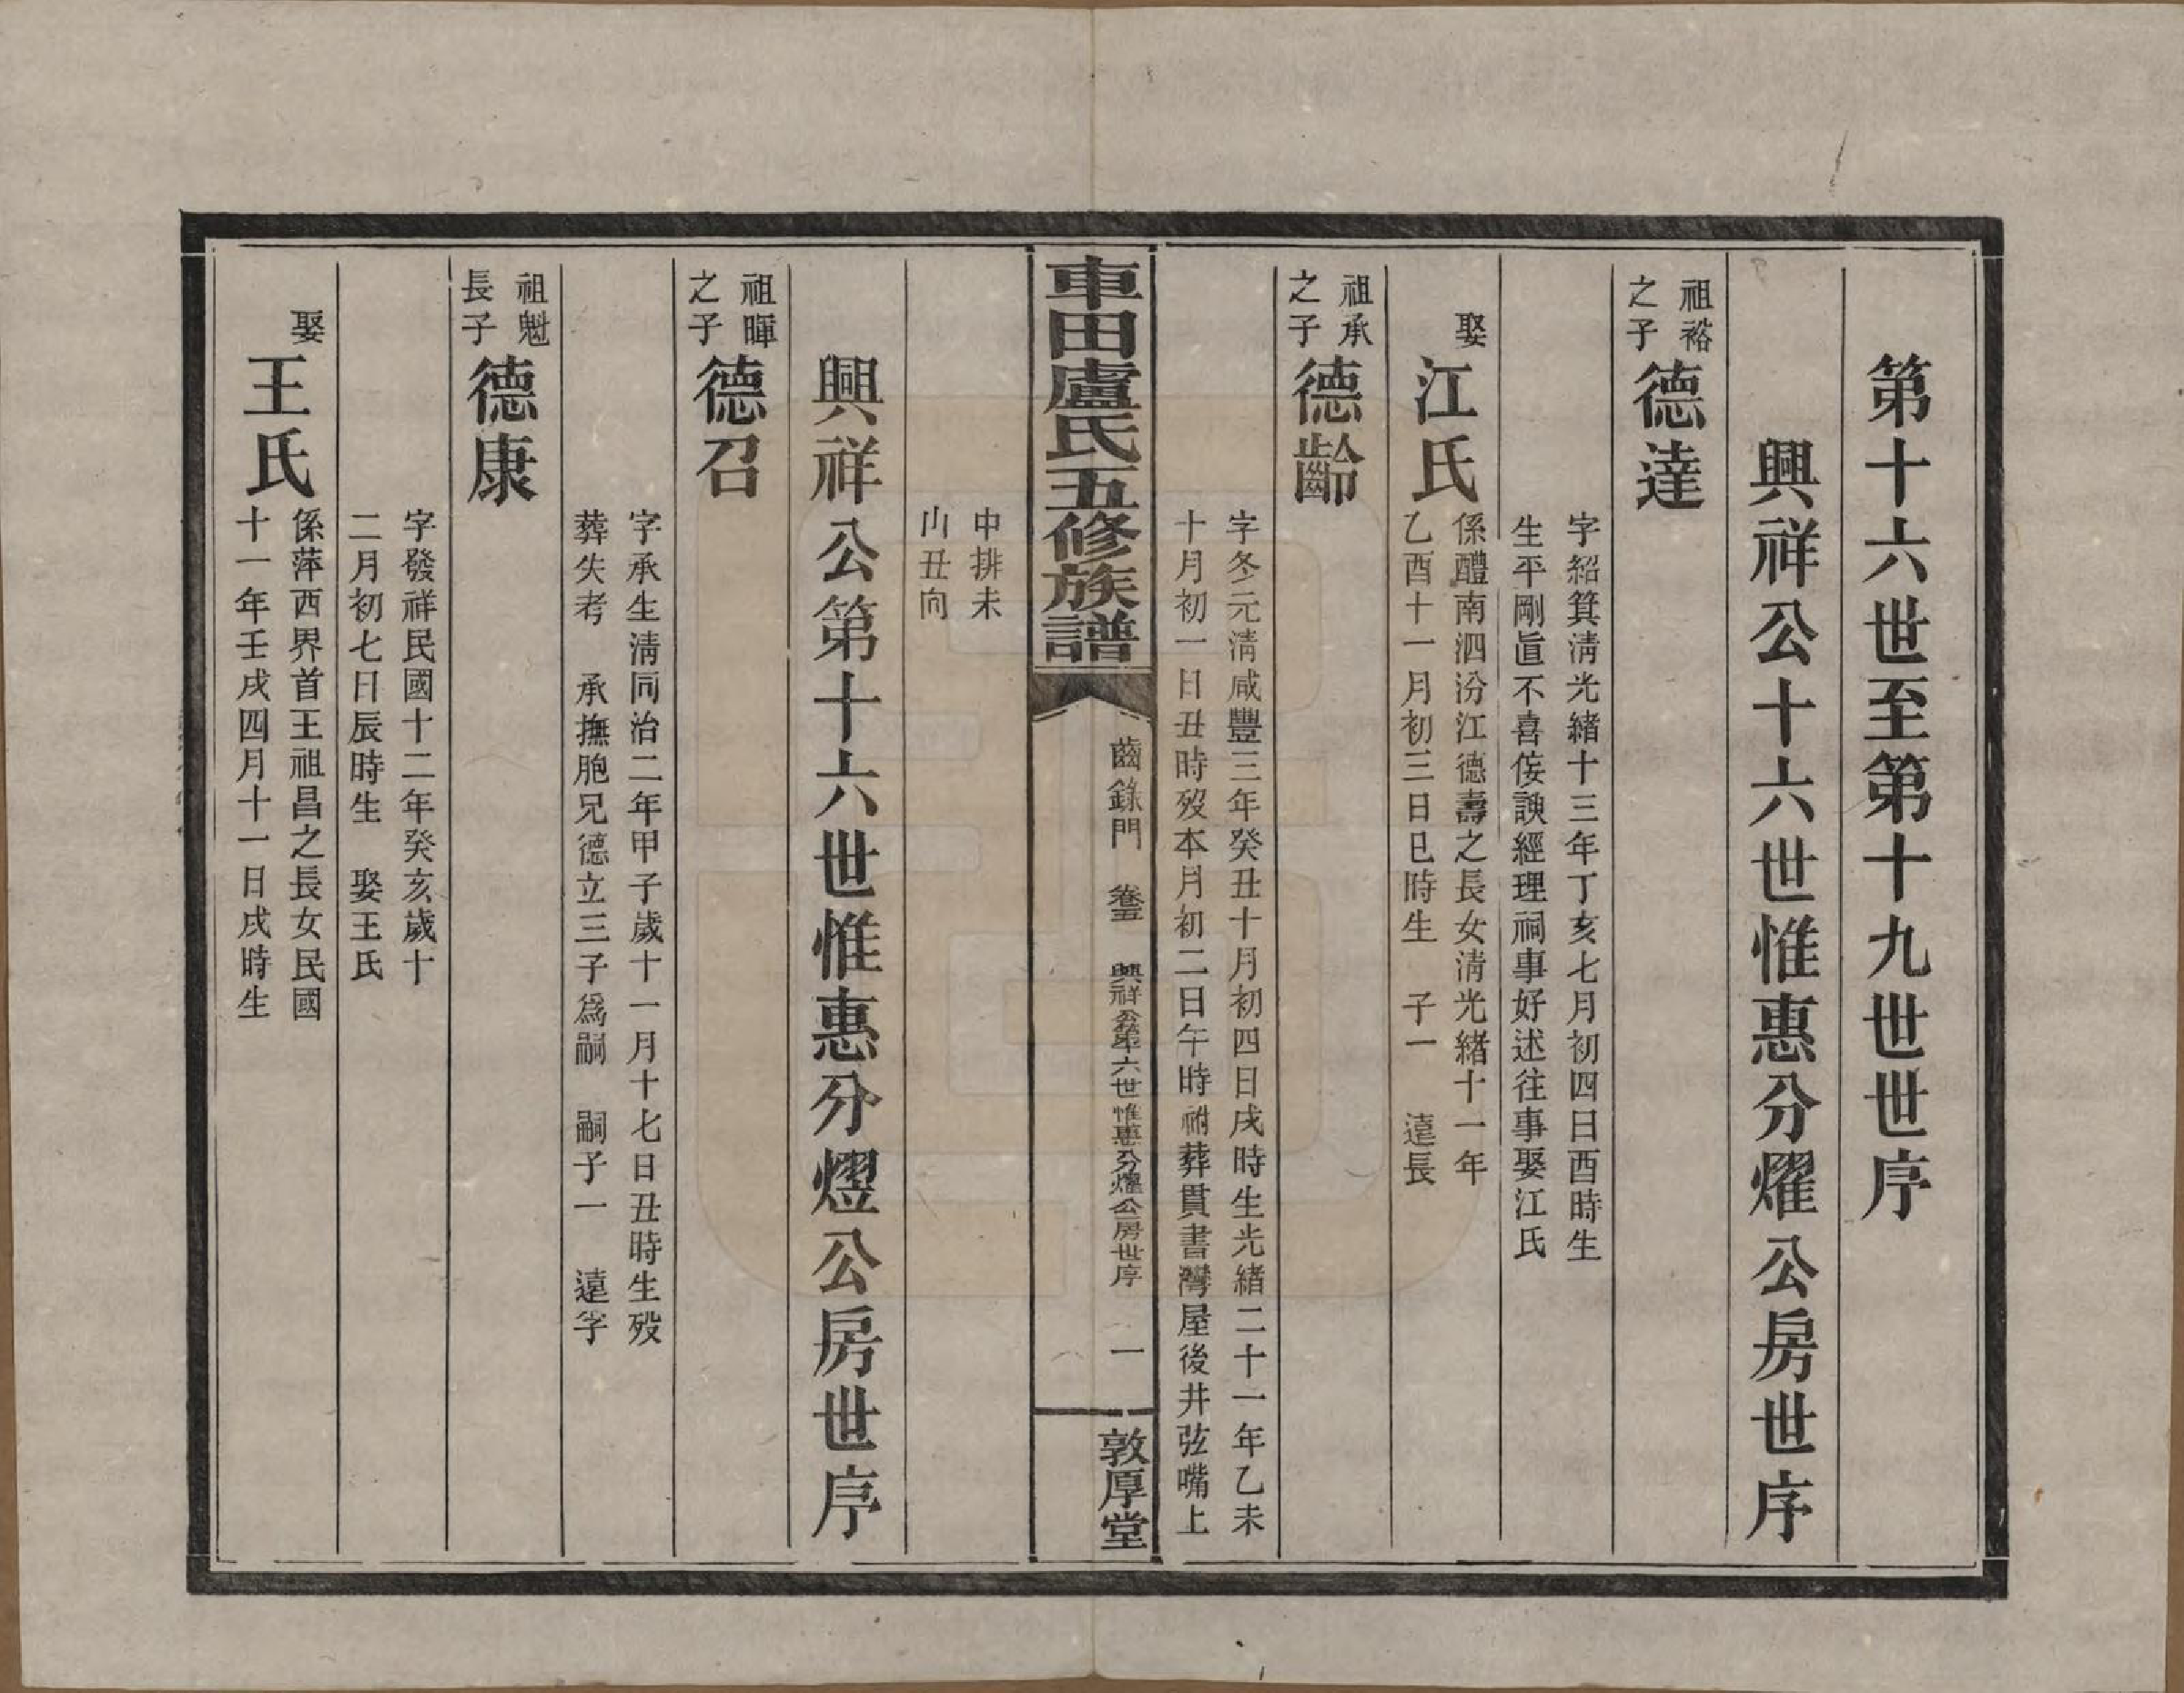 第十六世至第十九世世序
興祥公十六世惟惠分燿公房世序
祖裕
之子
德達
字紹箕清光緒十三年丁亥七月初四日酉時生
生平剛直不喜侫諛經理祠事好述往事娶江氏
娶
江氏
係醴南泗汾江德壽之長女清光緒十一年
乙酉十一月初三日巳時生　子一　遠長
祖承
之子
德齡
字冬元清咸豐三年癸丑十月初四日戌時生光緒二十一年乙未
十月初一日丑時歿本月初二日午時祔葬貫書灣屋後井弦嘴上
車田盧氏五修族譜
齒錄門　卷五　興祥公第十六世惟惠分燿公房世序　一
敦厚堂
中排未
山丑向
興祥公第十六世惟惠分熤公房世序
祖暉
之子
德召
字承生清同治二年甲子歲十一月十七日丑時生歿
葬失考　承撫胞兄德立三子爲嗣　嗣子一　遠孚
祖魁
長子
德康
字發祥民國十二年癸亥歲十
二月初七日辰時生　娶王氏
娶
王氏
係萍西界首王祖昌之長女民國
十一年壬戌四月十一日戌時生